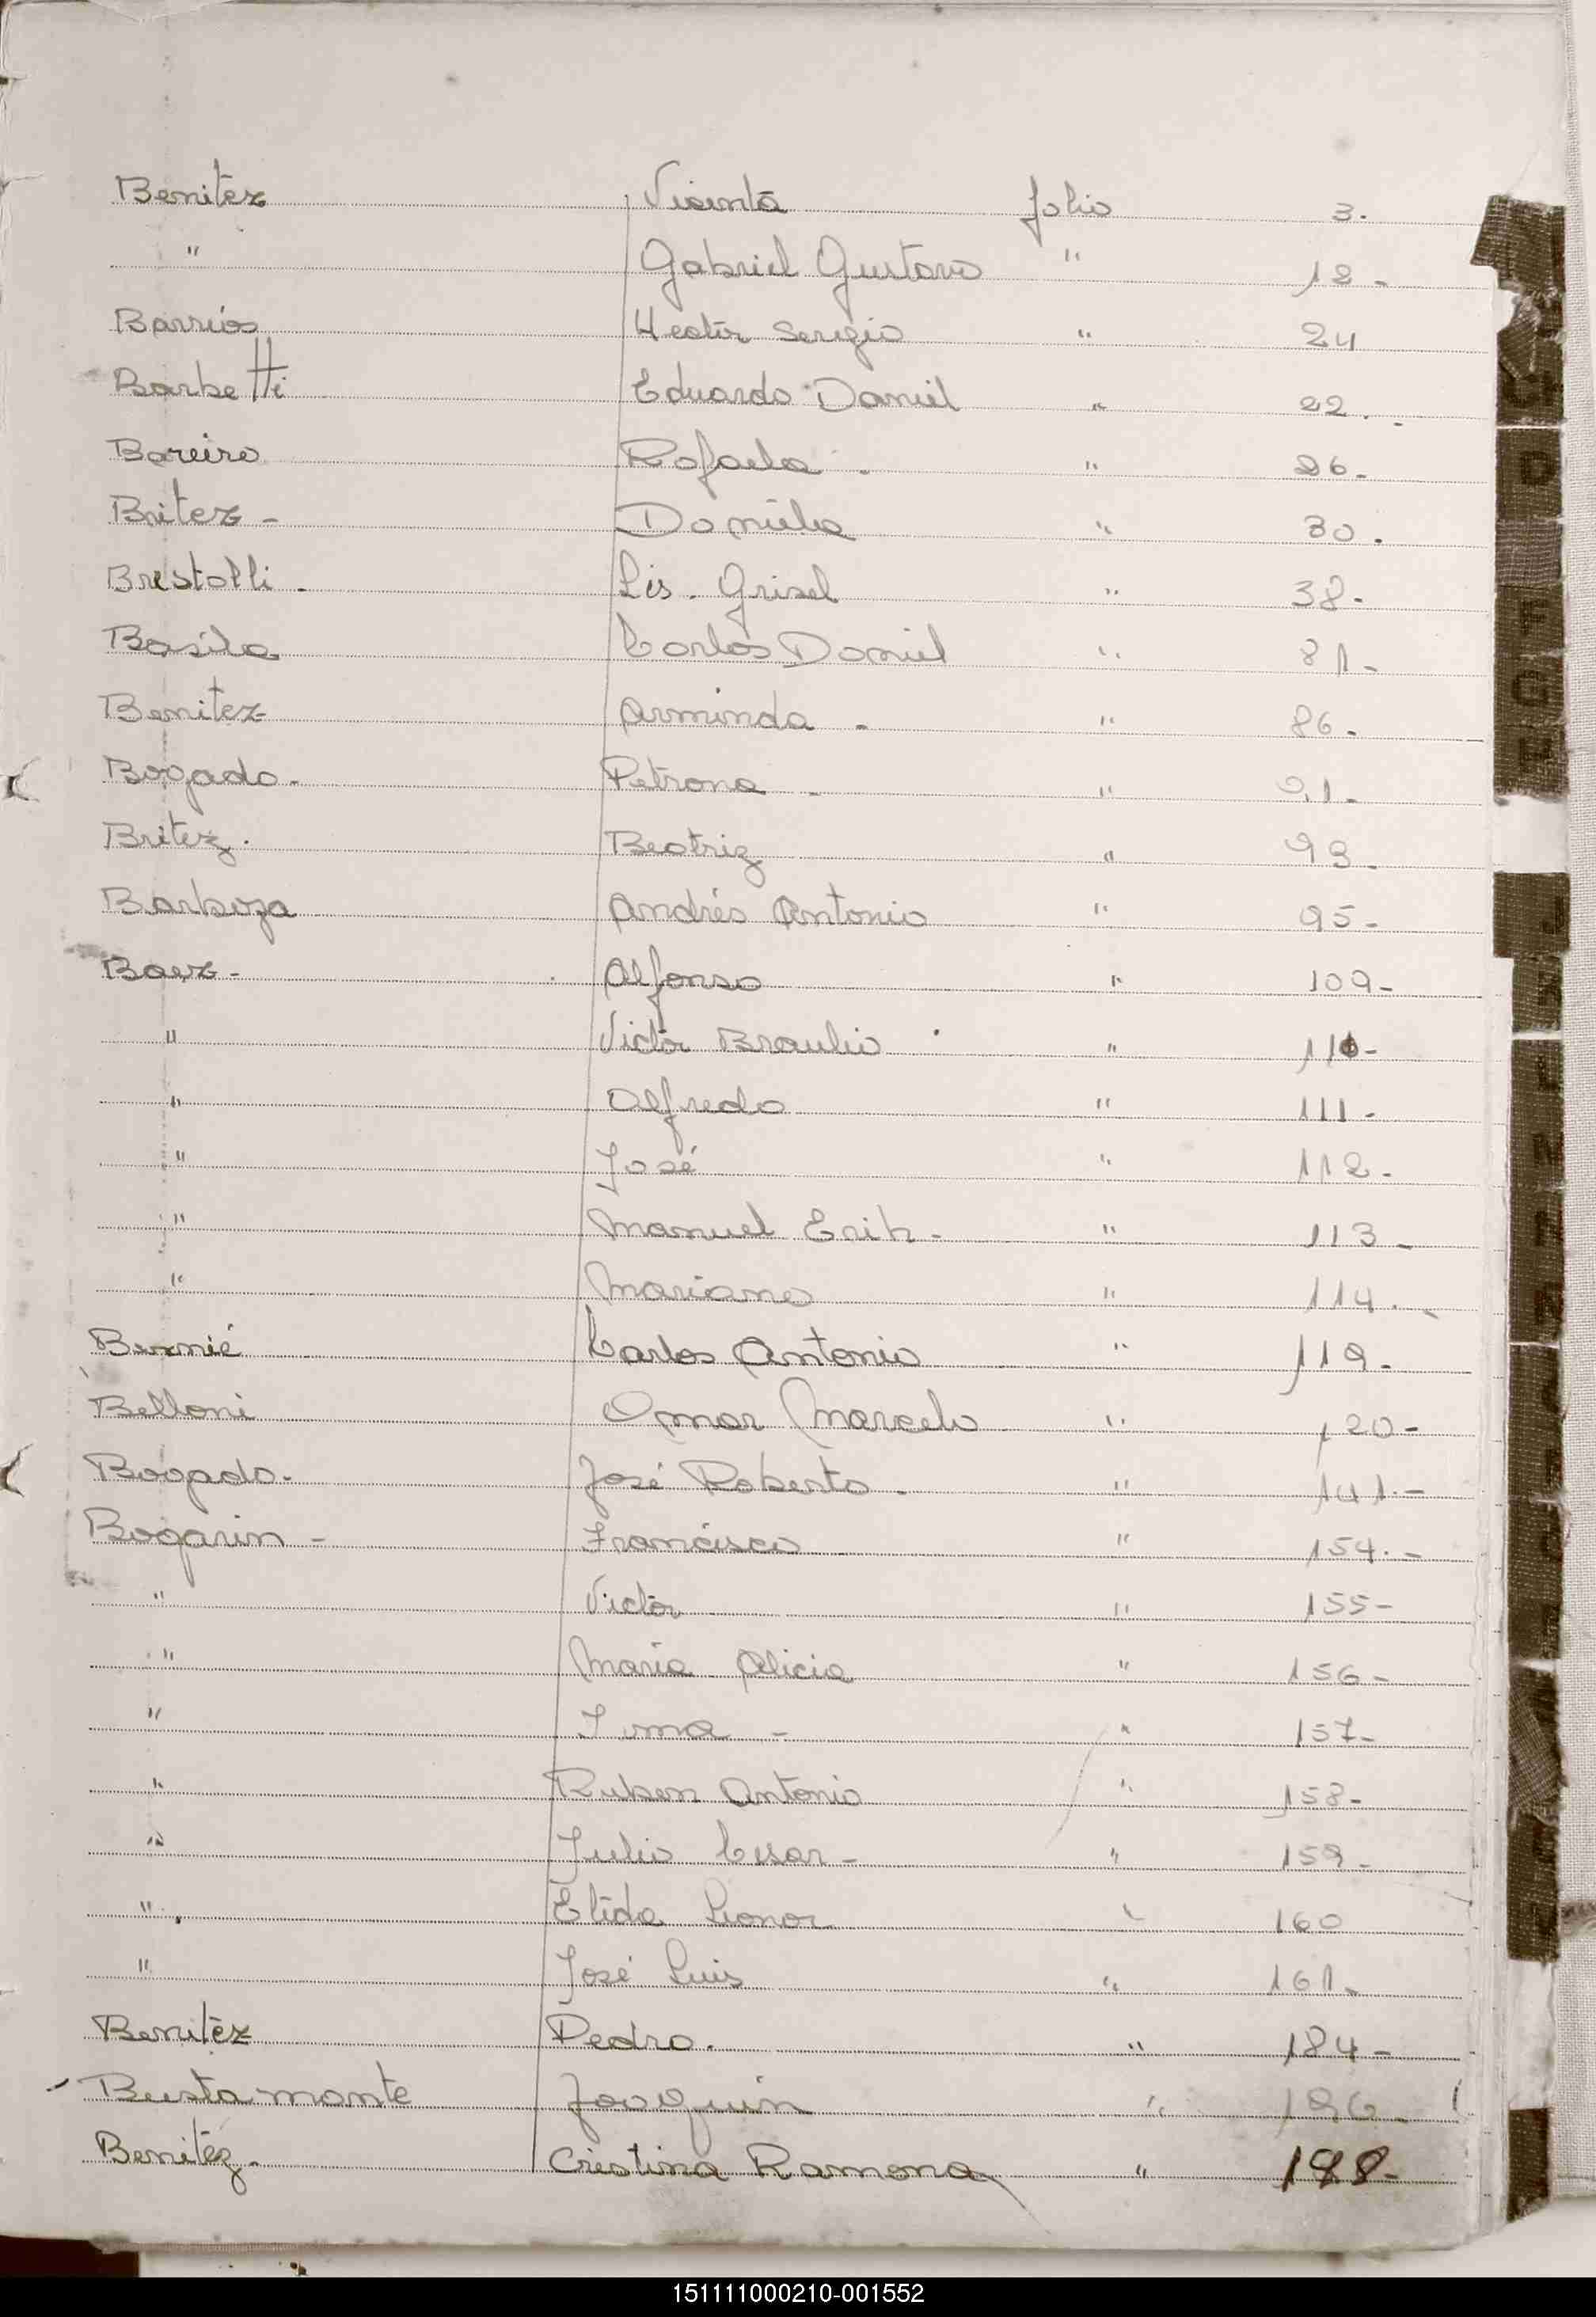 Benitez Visinta folio 3.
" Gabriel Gustavo " 18-
Barrios Hector Sergio " 24
Barbetti Eduardo Daniel " 22.
Bareiro Rafaela. " 26-
Britez- Daniela " 30.
Brestolli- Lis. Grisel " 38-
Basila Carlos Daniel " 81-
Benitez Arminda - " 86-
Bogado- Petrona - " 91-
Britez. Beatriz " 93-
Barboza Andrés Antonio " 95-
Baez- Alfonso " 109-
" Victor Braulio " 110-
" Alfredo " 111-
" José " 112-
" Manuel Erik- " 113-
" Mariano " 114.-
Bernié Carlos Antonio " 119-
Belloni Omar Marcelo " 120-
Bogado- José Roberto. " 141.-
Bogarin- Francisco " 154.-
" Victor " 155-
" Maria Alicia " 156-
" - " 157-
" Ruben Antonio " 158-
" Julio Cesar- " 159-
" Elida Leonor " 160
" José Luis " 161-
Benitez Pedro. " 184-
Bustamante Joaquin "
Benitez- Cristina Ramona " 188-
C
D
F
G
H
J
151111000210-001552